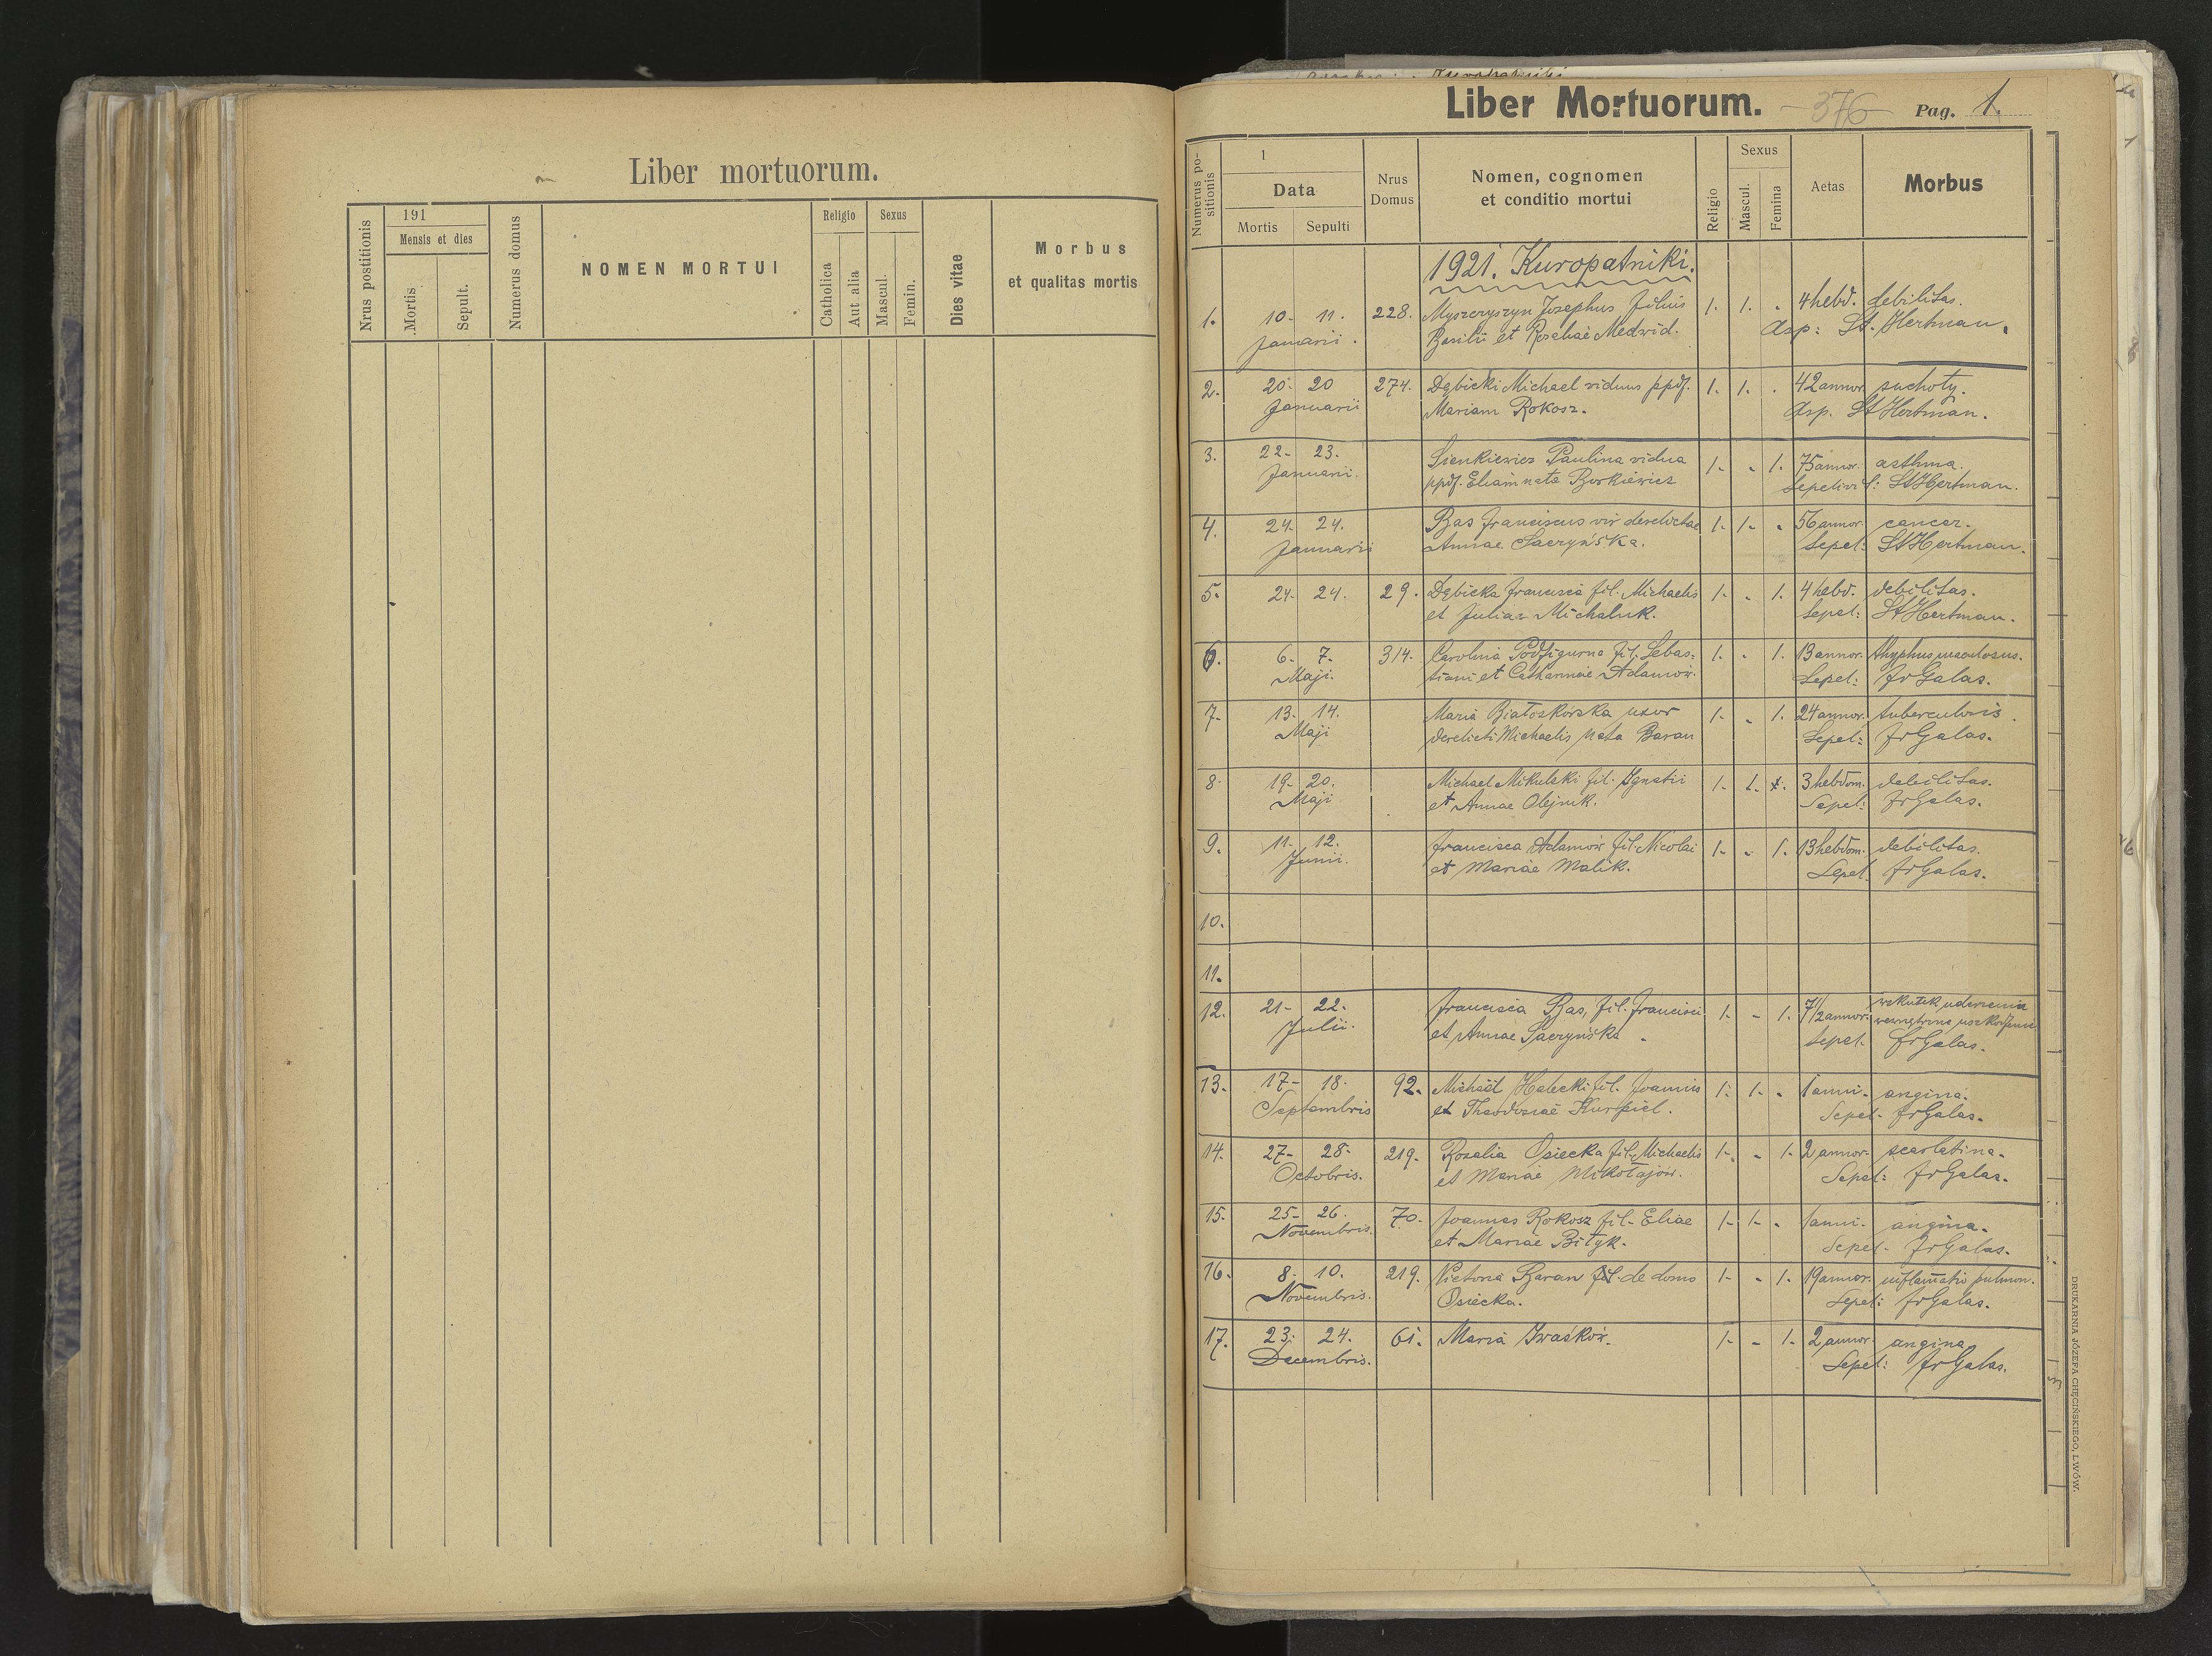 Liber mortuorum.
Nrus postitionis
191
Mensis et dies
Mortis
Sepult.
Numerus domus
NOMEN MORTUI
Religio
Catholica
Aut alia
Sexus
Mascul.
Femin.
Dies vitae
Morbus
et qualitas mortis
Liber Mortuorum. 376 Pag. 1.
Numerus po-
sitionis
1
Data
Mortis Sepulti
Nrus
Domus
Nomen, cognomen
et conditio mortui
Religio
Sexus
Mascul.
Femina
Aetas
Morbus
1921. Kuropatniki.
1. 10- 11. 228. Myszczyszyn Josephus filius 1. 1. - 4 hebd. debilitas.
Januarii. Basilii et Rosaliae Medwid. Asp: St. Hertman.
2. 20- 20 274. Dębicki Michael viduus ppdf. 1. 1. . 42 annor. suchoty.
Januarii Mariam Rokosz. Asp. St Hertman.
3. 22- 23. Sienkiewicz Paulina vidua 1- - 1. 75 annor. asthma.
Januarii. ppdf. Eliam nata Borkiewicz Sepelivit: St Hertman.
4. 24- 24. Bas Franciscus vir derelictae 1- 1- - 56 annor. cancer.
Januarii Annae Saczyńska. Sepel: St Hertman.
5. 24- 24. 29. Dębicka Francisca fil. Michaelis 1- - 1. 4 hebd. debilitas.
et Juliae Michaluk. Sepel: St Hertman.
6. 6- 7- 314. Carolina Podfigurna fil. Sebas- 1- - 1. 13 annor. thyphus maculosus.
Maji. tiani et Catharinae Adamów. Sepel: Fr Galas.
7- 13- 14. Maria Białoskorska uxor 1- - 1. 24 annor. tuberculosis.
Maji derelicti Michaelis nata Baran Sepel: Fr Galas.
8. 19- 20. Michael Mikulski fil. Ignatii 1- 1. 3 hebdom. debilitas.
Maji et Annae Olejnik. Sepel: Fr Galas.
9. 11- 12. Francisca Adamów fil. Nicolai 1- - 1. 13 hebdom. debilitas.
Junii. et Mariae Malik. Sepel. Fr Galas.
10.
11.
12. 21- 22- Francisca Bas, fil. Francisci 1- - 1. 7 1/2 annor. wskutek uderzenia
Julii. et Annae Saczyńska wewnętrzne uszkodzenie
Sepel- Fr Galas.
13. 17- 18. 92. Michael Halecki fil. Joannis 1- 1- - 1 anni- angina.
Septembris et Theodosiae Kurpiel. Sepel- Fr Galas.
14. 27- 28- 219. Rozalia Osiecka fil. Michaelis 1- - 1- 2 annor- scarlatina.
Octobris. et Mariae Mikołajów. Sepel: Fr Galas.
15. 25- 26. 70. Joannes Rokosz fil. Eliae 1- 1- - 1 anni- angina.
Novembris. et Mariae Bityk. Sepel- Fr Galas.
16. 8- 10. 219. Victoria Baran de domo 1- - 1- 19 annor. inflamatio pulmon.
Novembris. Osiecka. Sepel: Fr Galas.
17. 23- 24. 61. Maria Iwaśków. 1- - 1- 2 annor- angina
Decembris. Sepel: Fr Galas.
DRUKARNIA JÓZEFA CHĘCIŃSKIEGO, LWÓW.